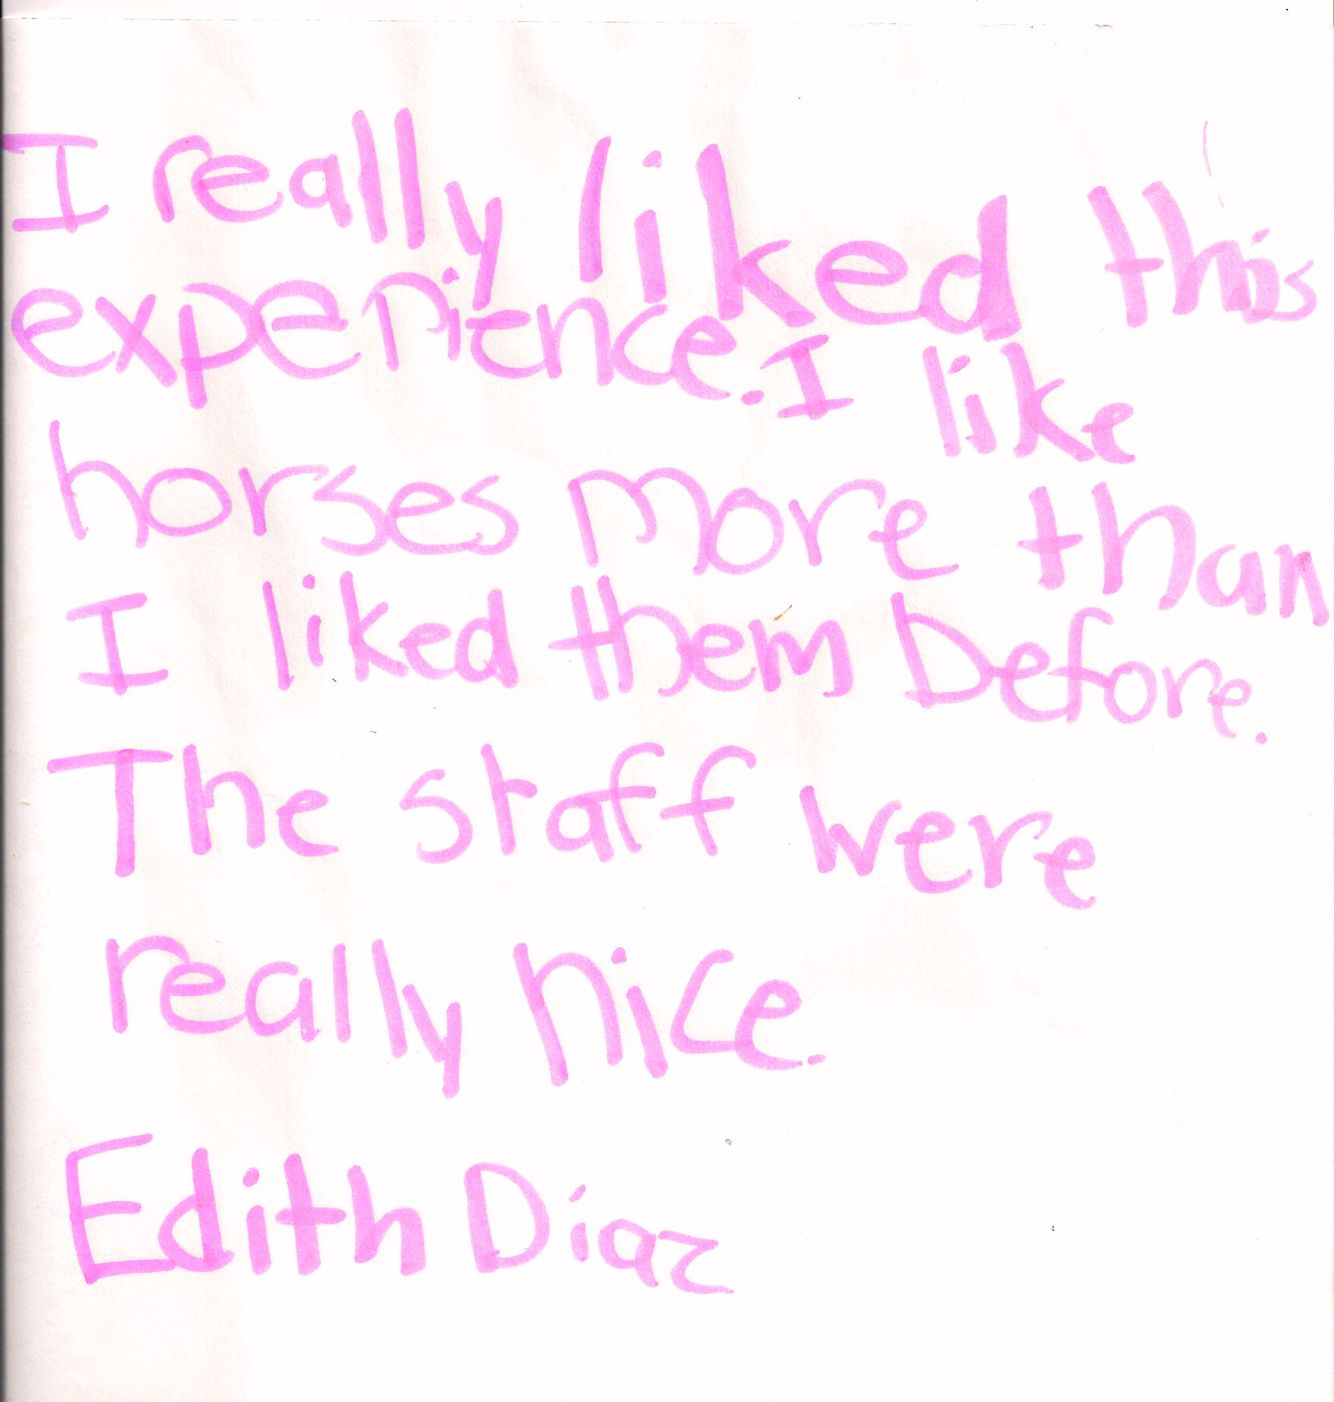 I really liked this
experience. I like
horses more than
I liked them before.
The staff were
really nice.
Edith Diaz